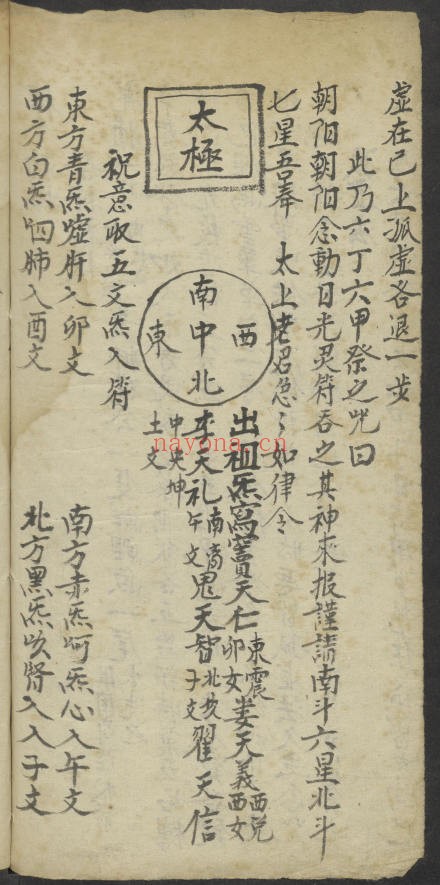 虛在己上孤虛各退一步
此乃六丁六甲祭之咒曰
朝阳朝阳念動日光灵符吞之其神來报謹請南斗六星北斗
七星吾奉 太上老君急々如律令
太極
南
西 中 東
北
出祖炁寫竇天仁 東震 卯女 婁天義 西兑 西女
李天礼 南离 午文 鬼天智 北坎 子文 翟天信
中央坤
土文
祝意取五文炁入符
東方青炁噓肝入卯文 南方赤炁呵炁心入午文
西方白炁呬肺入酉文 北方黑炁吹腎入入子文
nayona.cn